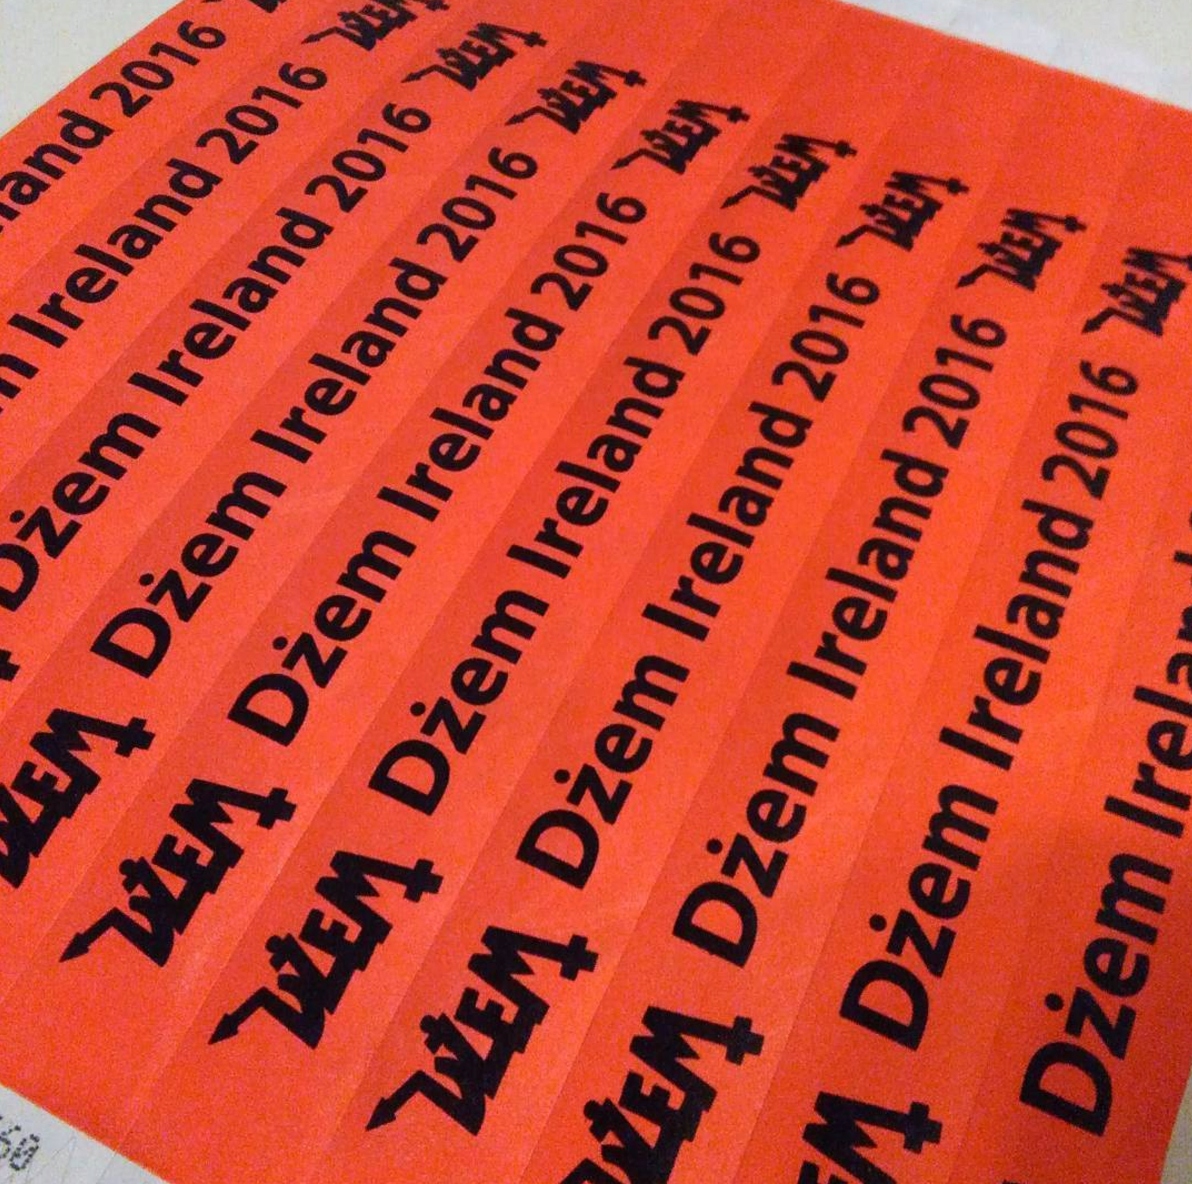 land 2016 DŻEM
m Ireland 2016 DŻEM
Dżem Ireland 2016 DŻEM
DŻEM Dżem Ireland 2016 DŻEM
DŻEM Dżem Ireland 2016 DŻEM
DŻEM Dżem Ireland 2016 DŻEM
DŻEM Dżem Ireland 2016 DŻEM
DŻEM Dżem Ireland 2016 DŻEM
DŻEM Dżem Ireland 2016 DŻEM
Dżem Irelan
60